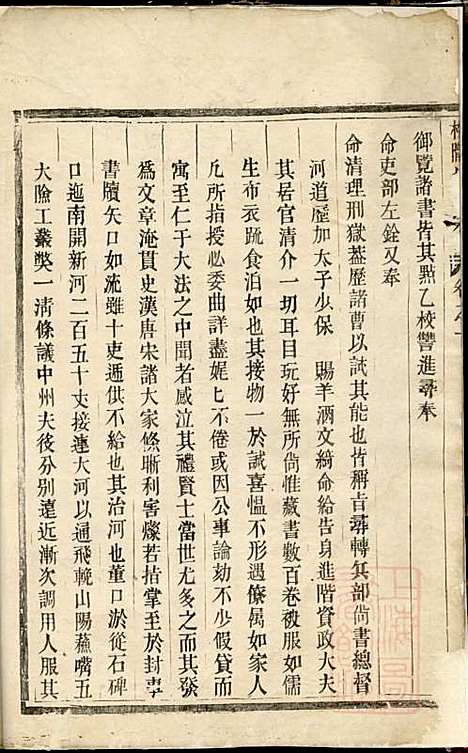 御覽諸書皆其點乙校讐進尋奉
命吏部左銓又奉
命清理刑獄蓋歷諸曹以試其能也皆稱㫖尋轉兵部尚書總督
河道歷加太子少保　賜羊酒文綺命給告身進階資政大夫
其居官清介一切耳目玩好無所尚惟藏書數百卷被服如儒
生布衣蔬食泊如也其接物一於誠喜慍不形遇僚屬如家人
凡所指授必委曲詳盡娓匕不倦或因公事論劾不少假貸而
寓至仁于大法之中聞者感泣其禮賢士當世尤多之而其發
爲文章淹貫史漢唐宋諸大家條晰利害燦若指掌至於封事
書牘矢口如流雖十吏遞供不給也其治河也董口淤從石碑
口迤南開新河二百五十丈接連大河以通飛輓山陽蕪嘴五
大險工叢獘一清條議中州夫後分別遠近漸次調用人服其